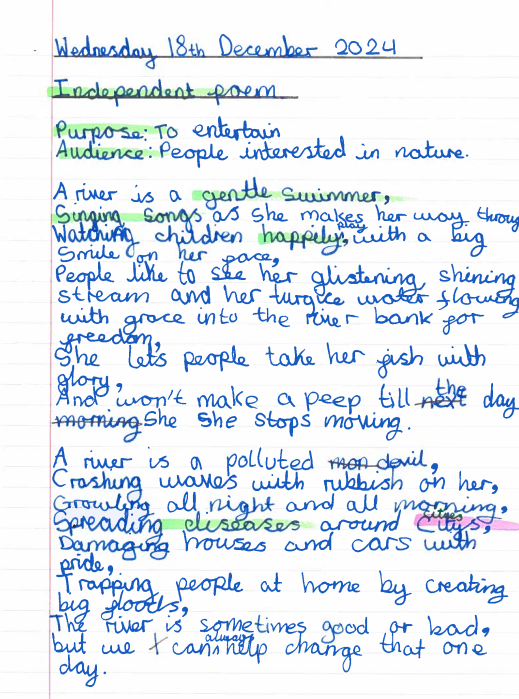 Wednesday 18th December 2024
Independent poem
Purpose: To entertain
Audience: People interested in nature.
A river is a gentle swimmer,
Singing songs as she makes her way throug
Watching children happily, play with a big
Smile on her face,
People like to see her glistening, shining
stream and her turqice water flowing
with grace into the river bank for
freedom,
She lets people take her fish with
glory,
And won't make a peep till next the day
morning She she stops moving.
A river is a polluted mon devil,
Crashing waves with rubbish on her,
Growling all night and all morning,
Spreading diseases around citys, cities
Damaging houses and cars with
pride,
Trapping people at home by creating
big floods,
The river is sometimes good or bad,
but we can always help change that one
day.